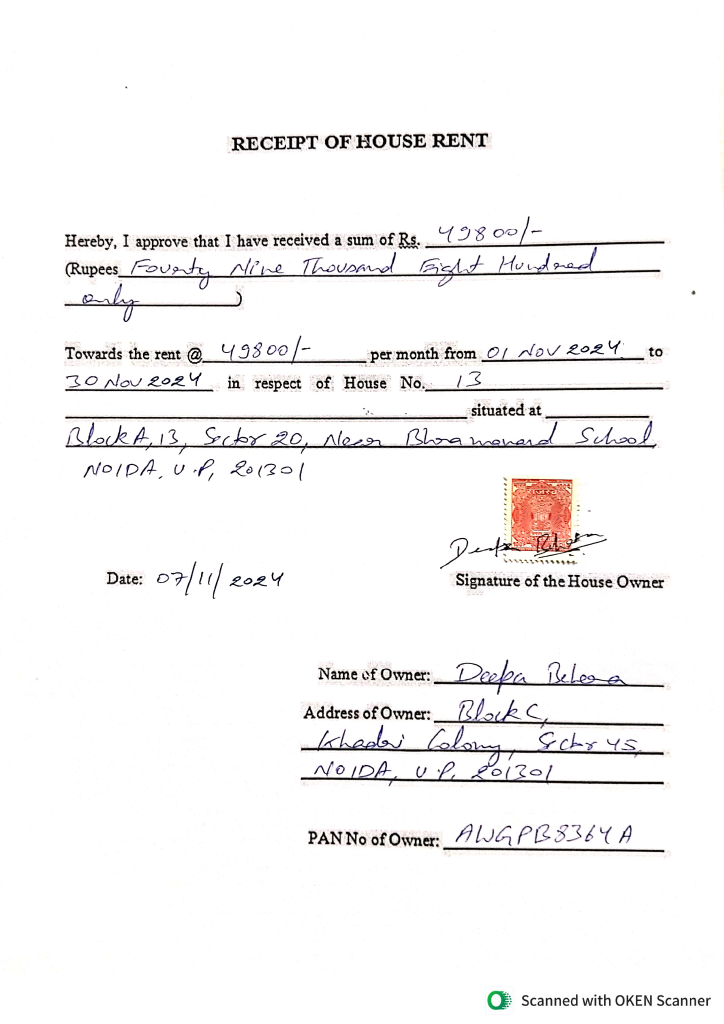 RECEIPT OF HOUSE RENT
Hereby, I approve that I have received a sum of Rs. 49800/-
(Rupees Fourty Nine Thousand Eight Hundred
only )
Towards the rent @ 49800/- per month from 01 Nov 2024 to
30 Nov 2024 in respect of House No. 13
situated at
Block A, 13, Sector 20, Near Bhramanand School,
NOIDA, U.P, 201301
Deepa Behera
Date: 07/11/2024
Signature of the House Owner
Name of Owner: Deepa Behera
Address of Owner: Block C,
Khadri Colony, Sector 45,
NOIDA, U.P, 201301
PAN No of Owner: AWGPB8364A
Scanned with OKEN Scanner